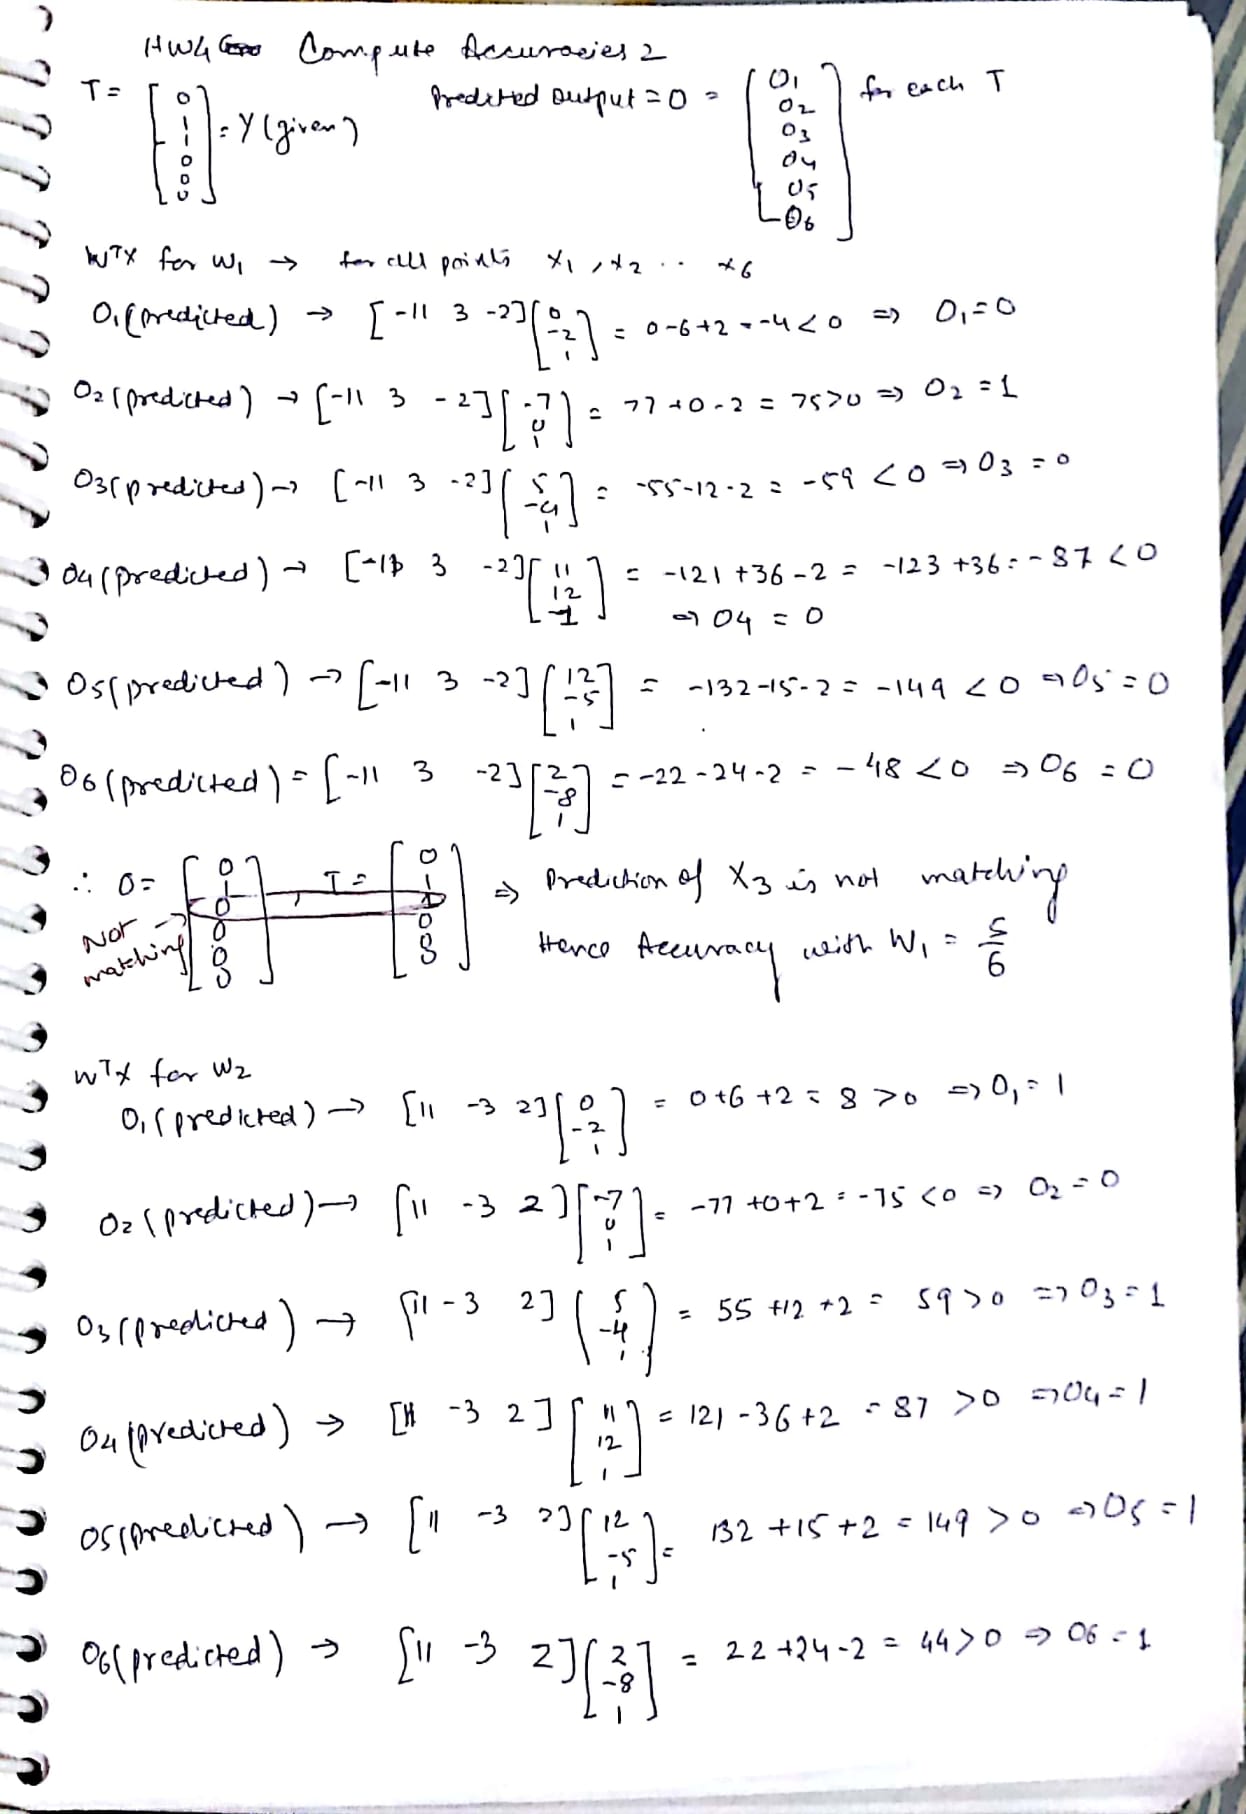 HW4 Compute Accuracies 2
T = [0 1 1 0 0 0] = Y (given) Predicted output = O = [O1 O2 O3 O4 O5 O6] for each T
WTX for W1 → for all points X1, X2 .. X6
O1 (predicted) → [-11 3 -2] [0 -2 1] = 0-6+2 = -4 < 0 ⇒ O1 = 0
O2 (predicted) → [-11 3 -2] [-7 0 1] = 77+0-2 = 75 > 0 ⇒ O2 = 1
O3 (predicted) → [-11 3 -2] [5 -4 1] = -55-12-2 = -59 < 0 ⇒ O3 = 0
O4 (predicted) → [-11 3 -2] [11 12 1] = -121+36-2 = -123+36 = -87 < 0
⇒ O4 = 0
O5 (predicted) → [-11 3 -2] [12 -5 1] = -132-15-2 = -149 < 0 ⇒ O5 = 0
O6 (predicted) = [-11 3 -2] [2 -8 1] = -22-24-2 = -48 < 0 ⇒ O6 = 0
∴ O = [0 1 0 0 0 0], T = [0 1 1 0 0 0] ⇒ Prediction of X3 is not matching
Not matching →
Hence Accuracy with W1 = 5/6
WTX for W2
O1 (predicted) → [11 -3 2] [0 -2 1] = 0+6+2 = 8 > 0 ⇒ O1 = 1
O2 (predicted) → [11 -3 2] [-7 0 1] = -77+0+2 = -75 < 0 ⇒ O2 = 0
O3 (predicted) → [11 -3 2] [5 -4 1] = 55+12+2 = 59 > 0 ⇒ O3 = 1
O4 (predicted) → [11 -3 2] [11 12 1] = 121-36+2 = 87 > 0 ⇒ O4 = 1
O5 (predicted) → [11 -3 2] [12 -5 1] = 132+15+2 = 149 > 0 ⇒ O5 = 1
O6 (predicted) → [11 -3 2] [2 -8 1] = 22+24-2 = 44 > 0 ⇒ O6 = 1